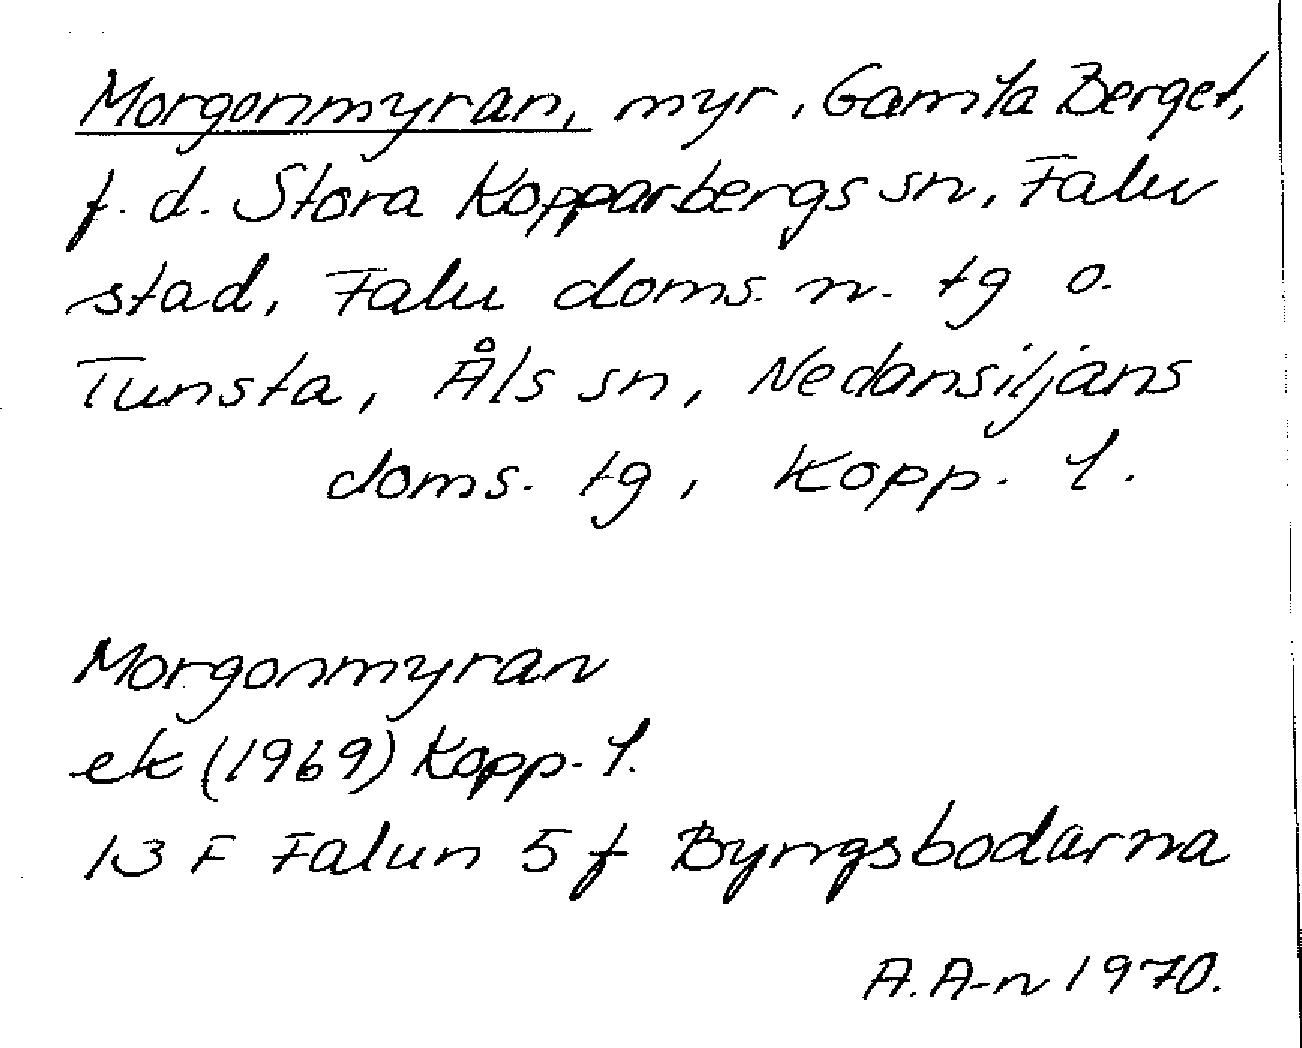 Morgonmyran, myr, Gamla Berget,
f. d. Stora Kopparbergs sn, Falu
stad, Falu doms. n. tg o.
Tunsta, Åls sn, Nedansiljans
doms. tg, Kopp. l.
Morgonmyran
ek (1969) Kopp. l.
13 F Falun 5 f Byngsbodarna
A. A-n 1970.